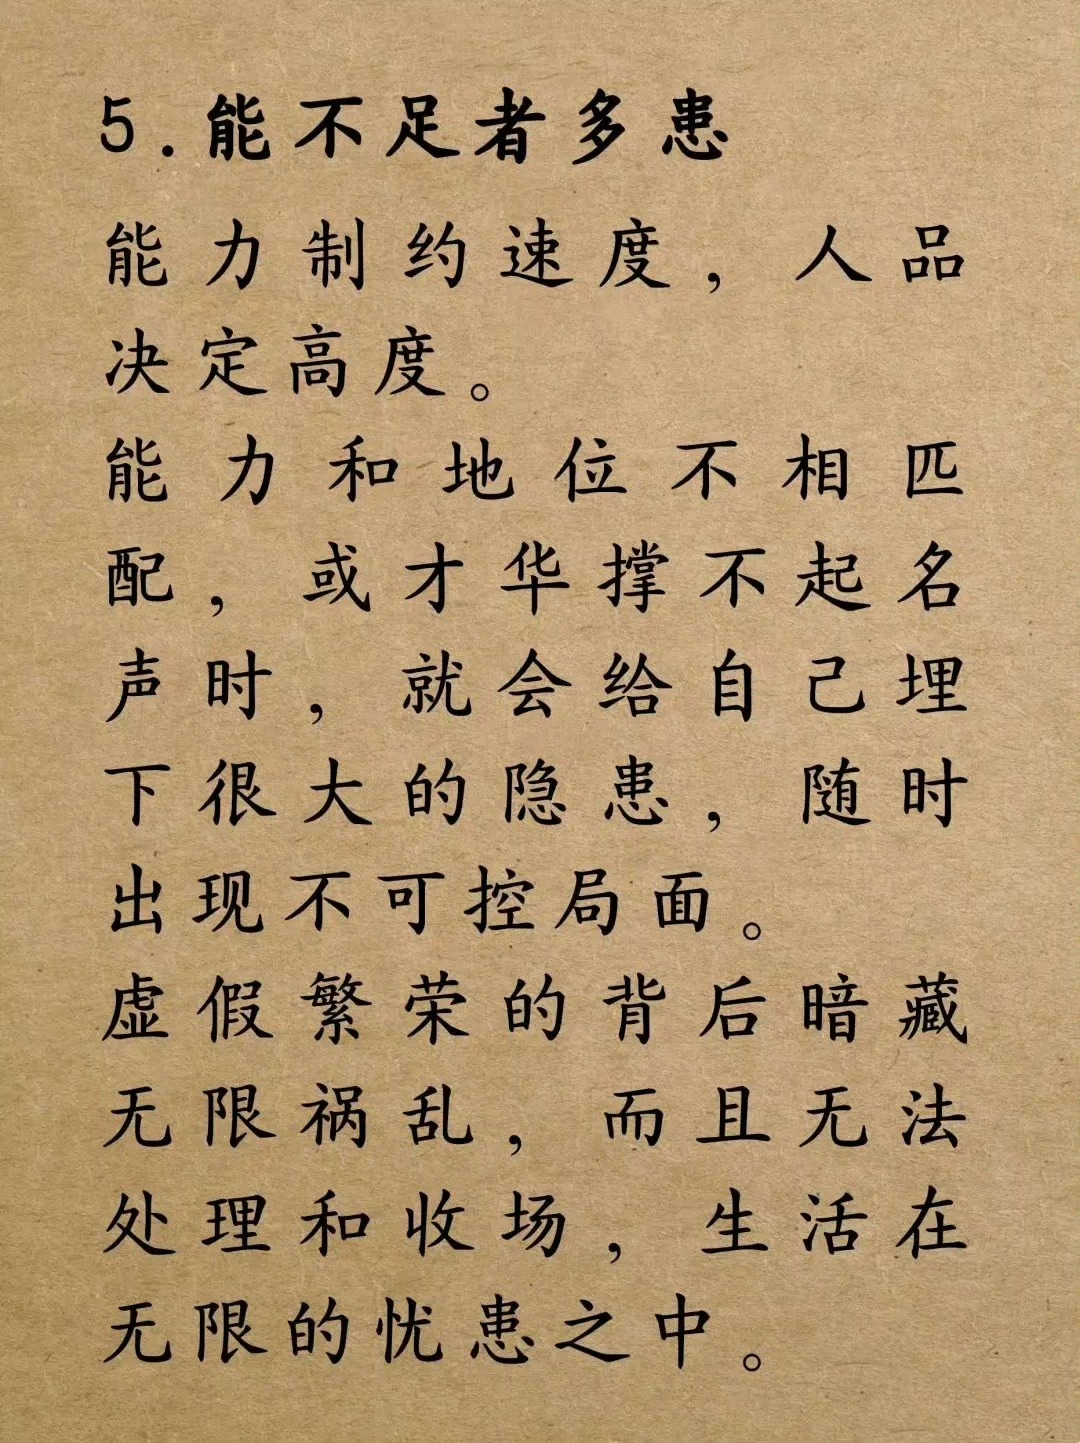 5.能不足者多患
能力制约速度,人品
决定高度。
能力和地位不相匹
配,或才华撑不起名
声时,就会给自己埋
下很大的隐患,随时
出现不可控局面。
虚假繁荣的背后暗藏
无限祸乱,而且无法
处理和收场,生活在
无限的忧患之中。